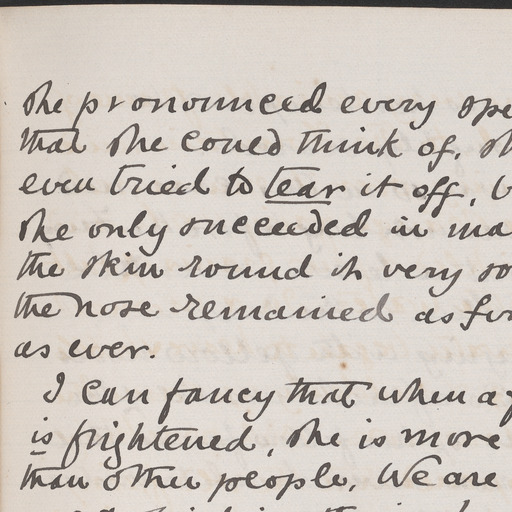 she pronounced every spe
that she could think of. sh
even tried to tear it off, b
she only succeeded in ma
the skin round it very so
the nose remained as fir
as ever.
I can fancy that when a f
is frightened, she is more
than other people. We are